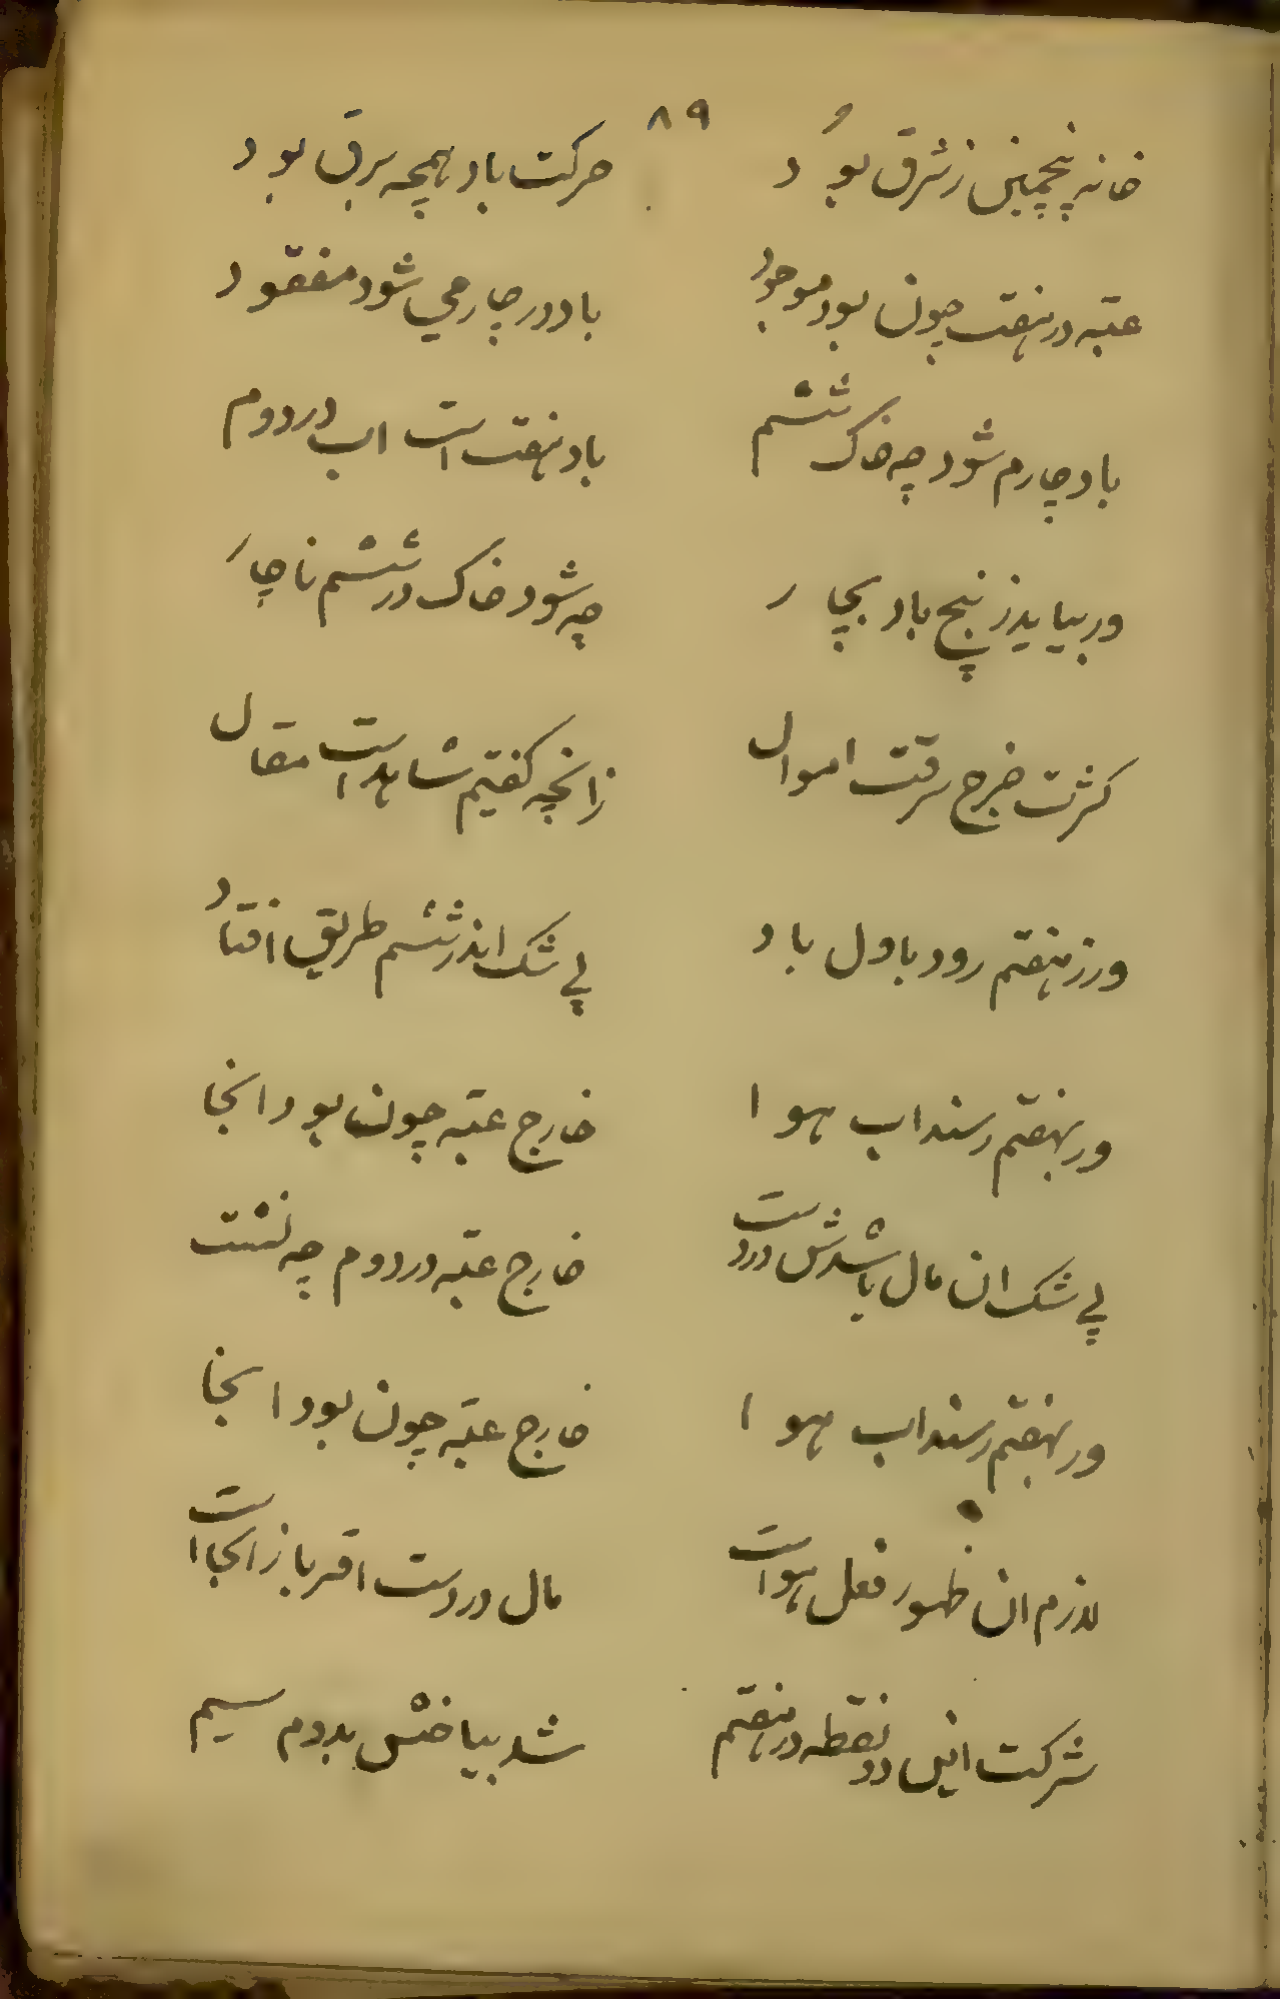 ۸۹
خانه پنجمین ز شرق بود حرکت باد همچه برق بود
عتبه در هفت چون بود موجود باد در چار می شود مفقود
باد چارم شود چه خاک ششم باد هفت است اب در دوم
ور بیاید ز پنج باد بچار چه شود خاک در ششم ناچار
کثرت خرج سرقت اموال زانچه گفتیم شاهد است مقال
ور ز هفتم رود باول باد پی شک اندر ششم طریق افتاد
ور بهفتم رسند اب هوا خارج عتبه چون بود انجا
پی شک ان مال باشدش در دست خارج عتبه در دوم چه نشست
ور بهفتم رسند اب هوا خارج عتبه چون بود انجا
لازم ان ظهور فعل هواست مال در دست اقربا زانجا است
شرکت این دو نقطه در هفتم شد بیاضش بدوم سیم